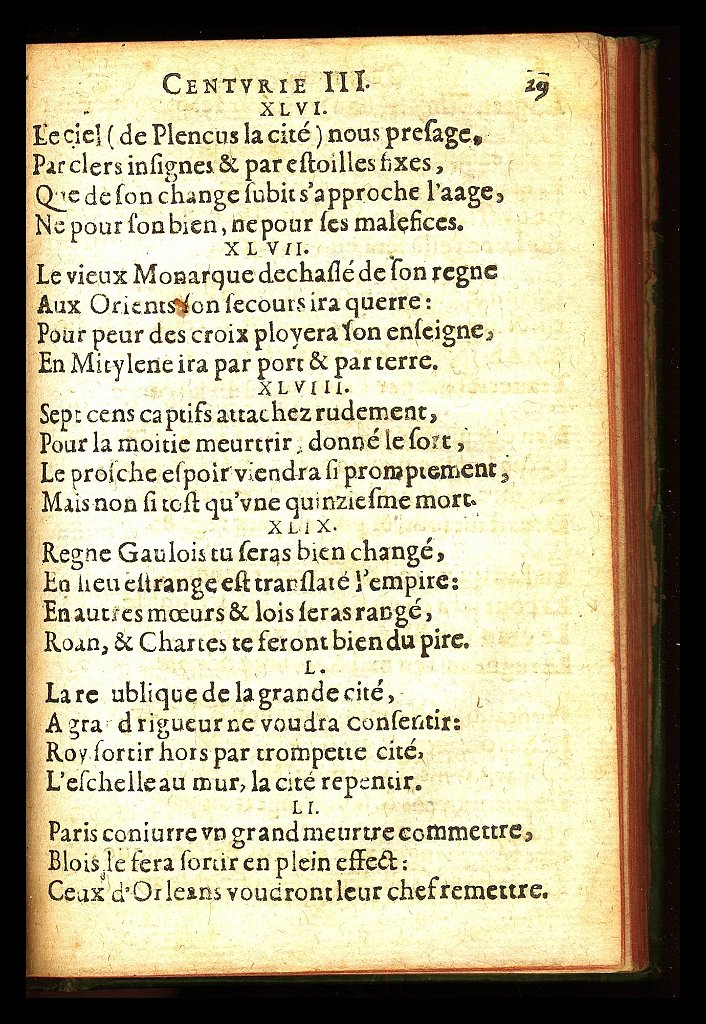 CENTVRIE III. 29
XLVI.
Le ciel (de Plencus la cité) nous preſage,
Par clers inſignes & par eſtoilles fixes,
Que de ſon change ſubit s'approche l'aage,
Ne pour ſon bien, ne pour ſes malefices.
XLVII.
Le vieux Monarque dechaſſé de ſon regne
Aux Orients ſon ſecours ira querre:
Pour peur des croix ployera ſon enſeigne,
En Mitylene ira par port & par terre.
XLVIII.
Sept cens captifs attachez rudement,
Pour la moitie meurtrir, donné le ſort,
Le proſche eſpoir viendra ſi promptement,
Mais non ſi toſt qu'vne quinzieſme mort.
XLIX.
Regne Gaulois tu ſeras bien changé,
En lieu eſtrange eſt tranſlaté l'empire:
En autres mœurs & lois ſeras rangé,
Roan, & Chartes te feront bien du pire.
L.
La re ublique de la grande cité,
A gra d rigueur ne voudra conſentir:
Roy ſortir hors par trompette cité,
L'eſchelle au mur, la cité repentir.
LI.
Paris coniurre vn grand meurtre commettre,
Blois le fera ſortir en plein effect:
Ceux d'Orleans voudront leur chef remettre.